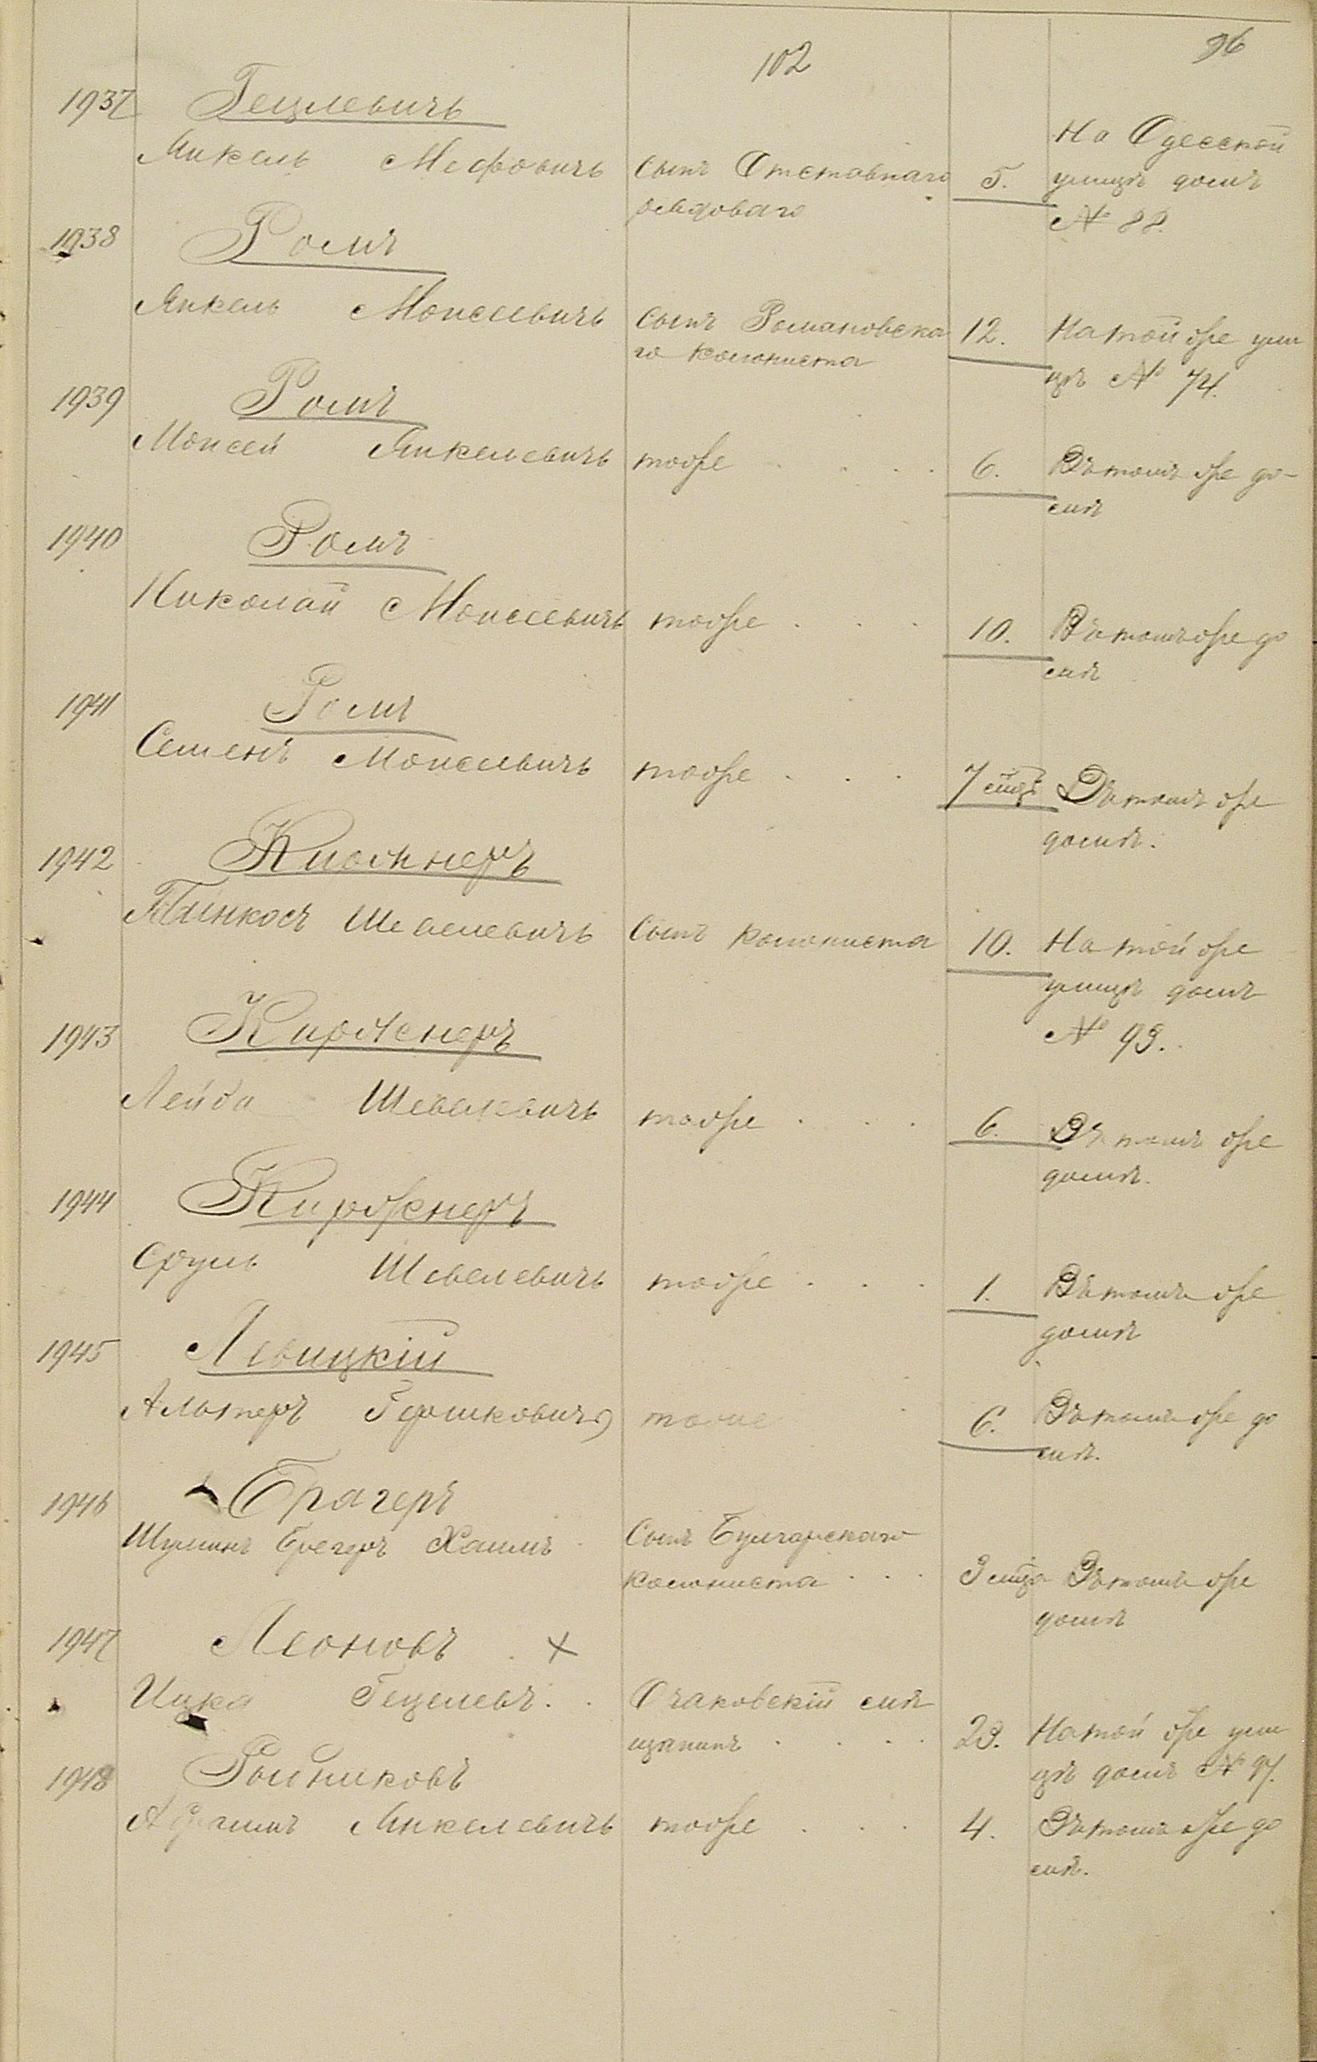 102
96
1937 Гецлевичъ
На Одесской
Янкель Меѳровичъ сынъ Отставнаго 5. улицѣ домъ
рядоваго № 88.
1938 Ромъ
Янкель Моисеевичъ сынъ Романовска 12. На той же ули
го колониста цѣ № 74.
1939 Ромъ
Моисей Янкелевичъ тоже . . . . 6. Въ томъ же до-
мѣ
1940 Ромъ
Николай Моисеевичъ тоже . . . 10. Въ томъ же до
мѣ
1941 Ромъ
Семенъ Моисеевичъ тоже . . . 7 мцѣ Въ томъ же
домѣ.
1942 Киржнеръ
Пинкосъ Шевелевичъ Сынъ колониста 10. На той же
улицѣ домъ
№ 93.
1943 Киржнеръ
Лейба Шевелевичъ тоже . . . 6. Въ томъ же
домѣ.
1944 Киржнеръ
Сруль Шевелевичъ тоже . . . 1. Въ томъ же
домѣ
1945 Левицкій
Альтеръ Гершковичъ тоже 6. Въ томъ же до
мѣ.
1946 Брагеръ
Хаимъ Сынъ Булгарскаго
колониста . . . 3 мца Въ томъ же
домѣ
1947 Леоновъ х
Ицка Гецелевъ. . Очаковскій мѣ
щанинъ . . . . 23. На той же ули
цѣ домъ № 97.
1948 Рыбниковъ
Абрамъ Янкелевичъ тоже . . . 4. Въ томъ же до
мѣ.